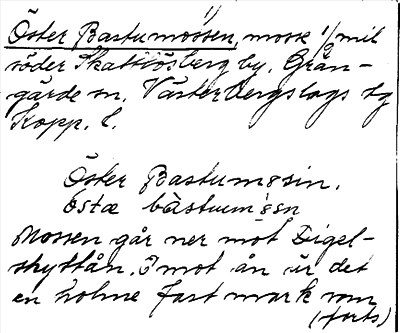 Öster Bastumossen, mosse 1/2 mil
söder Skattlösberg by. Grän-
gärde sn. Västerbergslags dg
Kopp. l.
Öster Bastumosin.
östæ bàstuum
Mossen går ner mot Digel-
skyttån. I mot ån är det
en holme fast mark som
(forts)